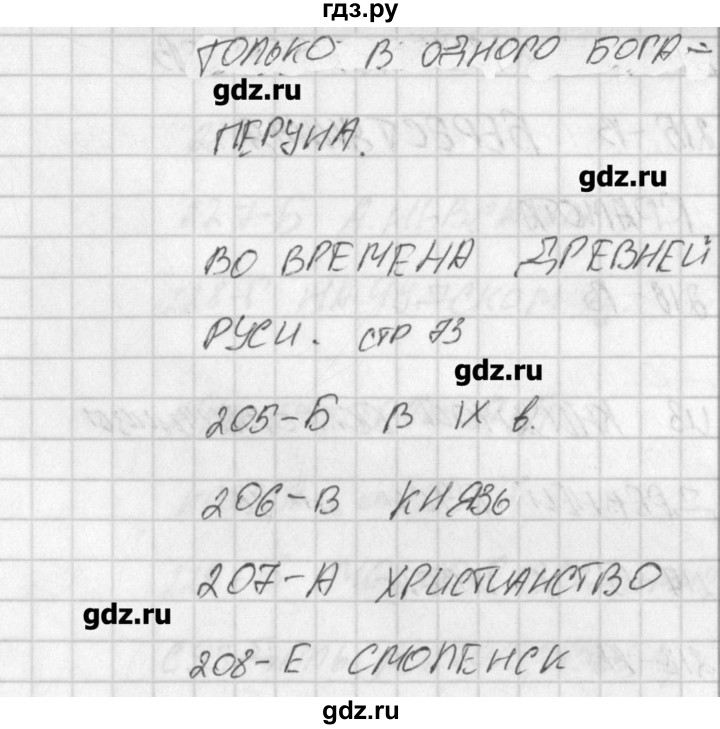 гдз.ру
ТОЛЬКО В ОДНОГО БОГА -
gdz.ru
ПЕРУНА.
gdz.ru
ВО ВРЕМЕНА ДРЕВНЕЙ
РУСИ. стр 73
gdz.ru
205-Б В IX в.
206-В КНЯЗЬ
207-А ХРИСТИАНСТВО
gdz.ru
208-Е СМОЛЕНСК
gdz.ru